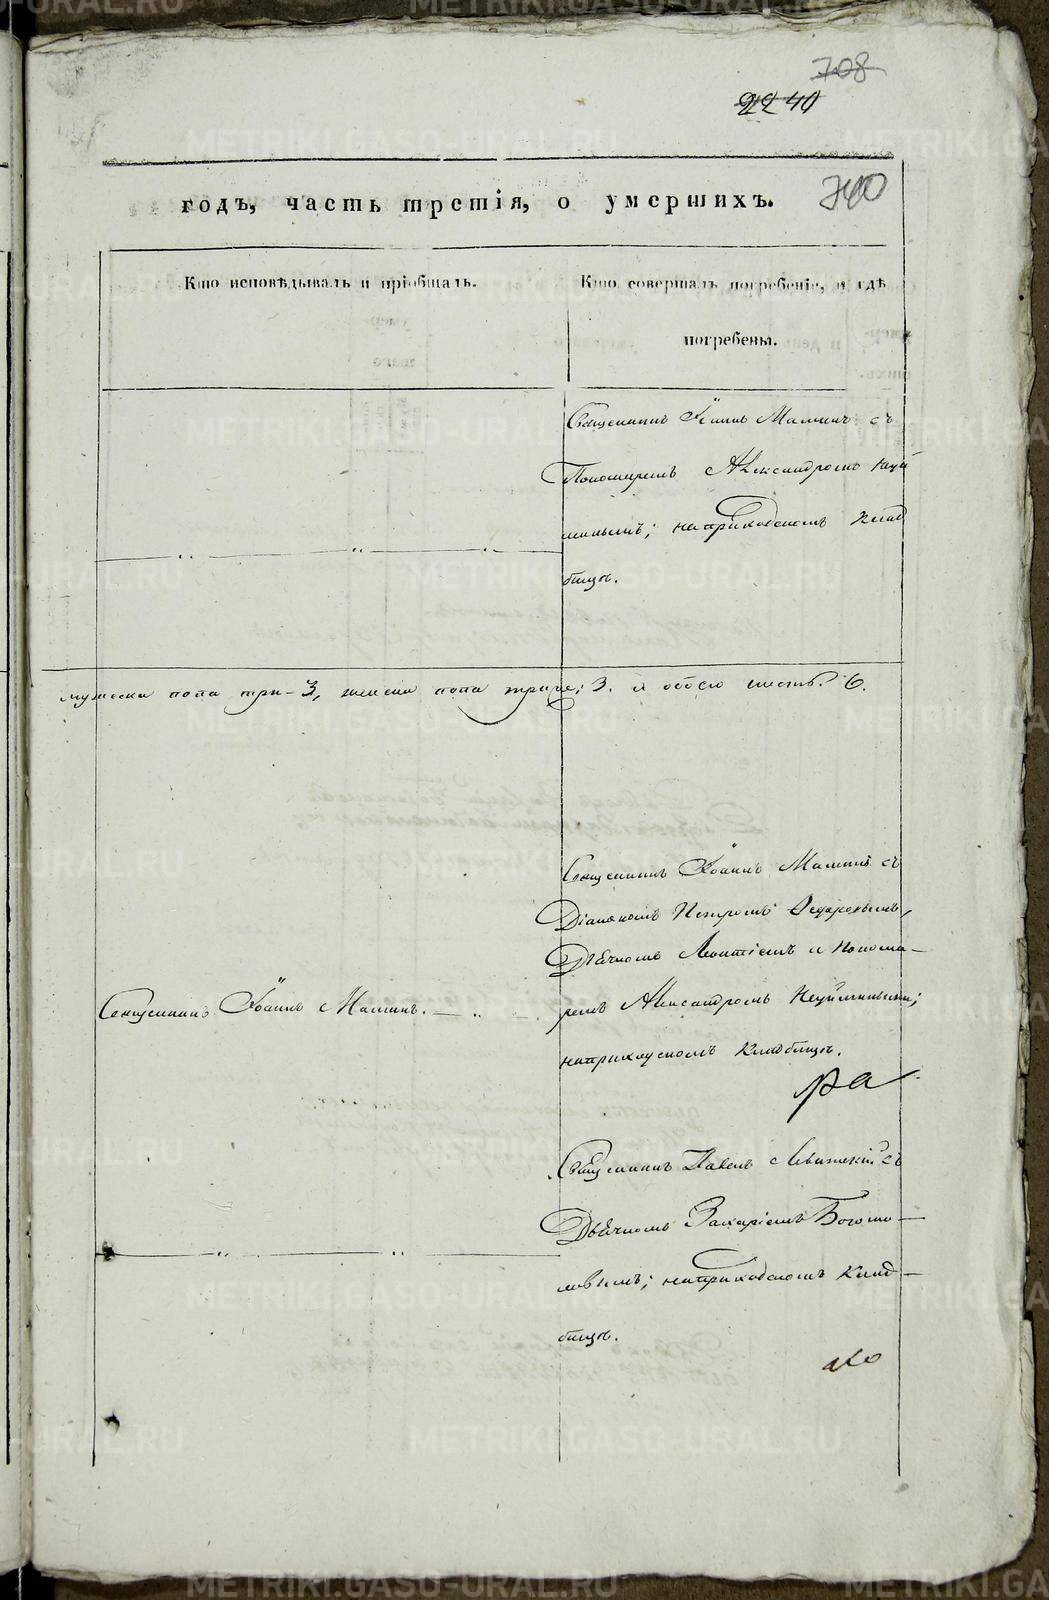 708
2240
740
годъ, часть третія, о умершихъ.
Кто исповѣдывалъ и пріобщалъ.
Кто совершалъ погребеніе, и гдѣ
погребены.
Священникъ Іоаннъ Маминъ съ
Пономаремъ Александромъ
на приходскомъ клад
бищѣ.
мужеска пола три - 3, женска пола трое; 3. и обоего шесть. 6.
Священникъ Іоаннъ Маминъ съ
Діакономъ Петромъ Ѳедоровымъ,
Дьячкомъ Леонтіемъ и Понома-
Священникъ Іоаннъ Маминъ.
ремъ Александромъ
на приходскомъ кладбищѣ.
Священникъ Павелъ Левитскій съ
Дьячкомъ Захаріемъ Богомо-
ловымъ; на приходскомъ клад-
бищѣ.
METRIKI.GASO-URAL.RU